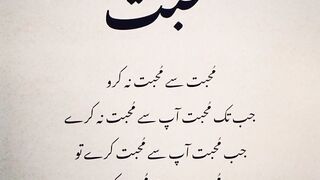 محبت
مُحبت سے مُحبت نہ کرو
جب تک مُحبت آپ سے مُحبت نہ کرے
جب مُحبت آپ سے مُحبت کرے تو